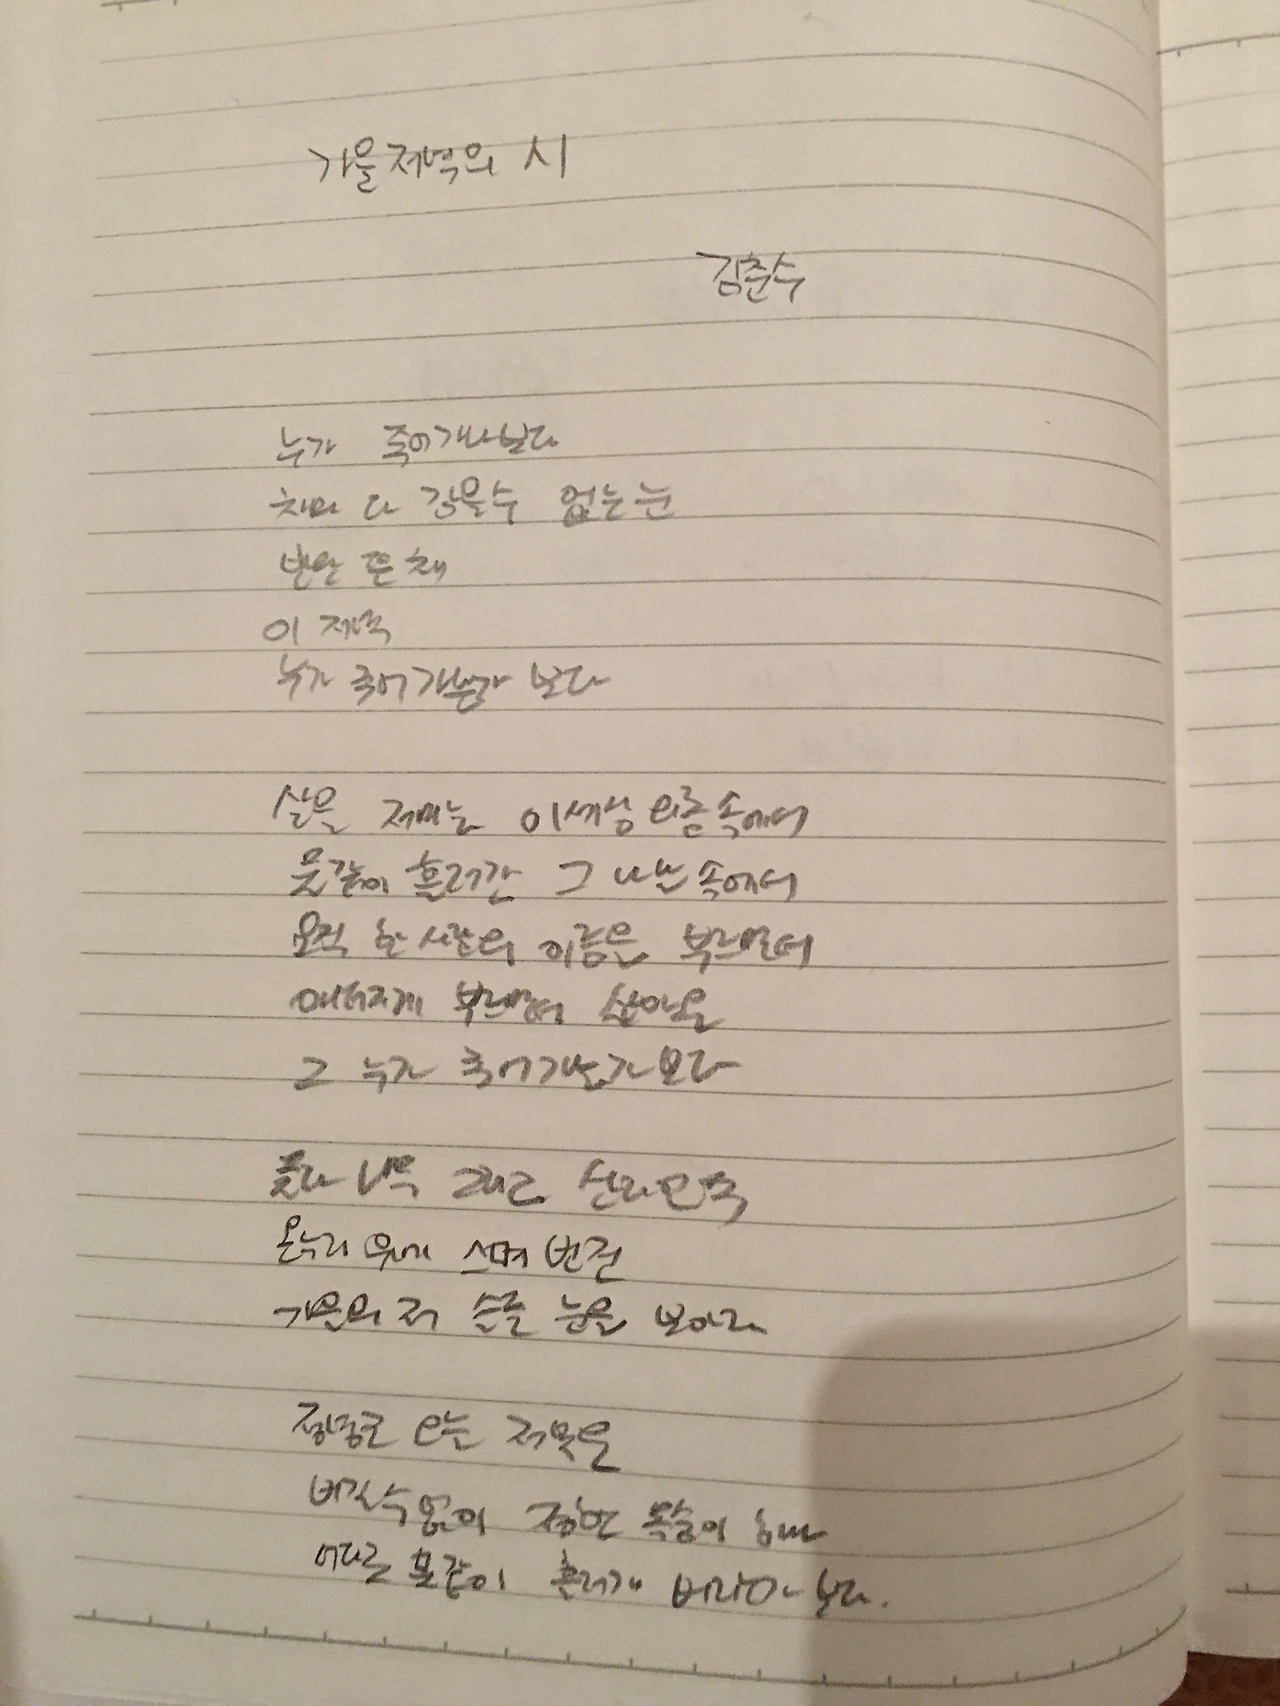 가을 저녁의 시
김춘수
누가 죽어가나보다
차마 다 감을수 없는 눈
반만 뜬 채
이 저녁
누가 죽어가는가 보다
살을 저미는 이세상 외롬 속에서
물같이 흘러간 그 나날 속에서
오직 한 사람의 이름을 부르면서
애터지게 부르면서 살아온
그 누가 죽어가는가 보다
풀과 나무 그리고 산과 언덕
온누리 위에 스며 번진
가을의 저 슬픈 눈을 보아라
정녕코 오늘 저녁은
비길수 없이 정한 목숨이 하나
어디로 물같이 흘러가 버리는가 보다.